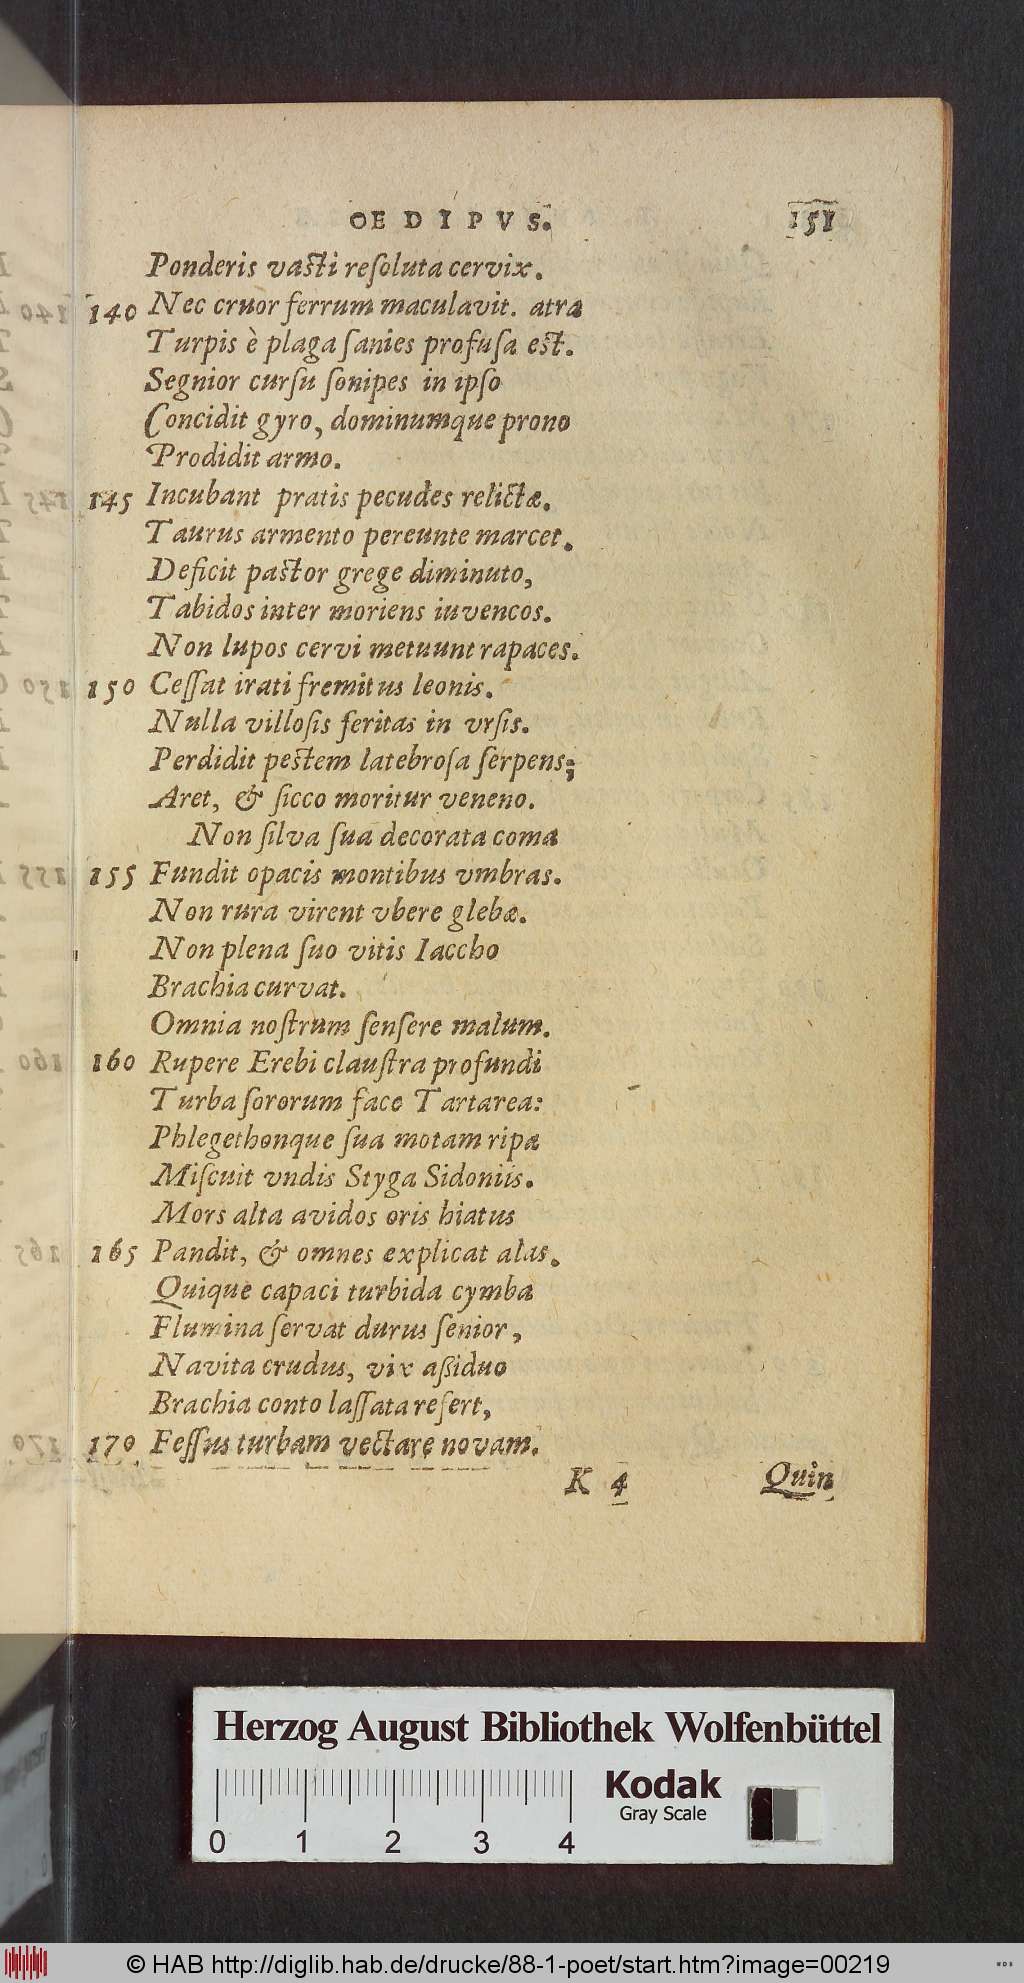 OEDIPVS. 151
Ponderis vasti reſoluta cervix.
140 Nec cruor ferrum maculavit. atra
Turpis è plaga ſanies profuſa est.
Segnior curſu ſonipes in ipſo
Concidit gyro, dominumque prono
Prodidit armo.
145 Incubant pratis pecudes relictæ.
Taurus armento pereunte marcet.
Deficit pastor grege diminuto,
Tabidos inter moriens iuvencos.
Non lupos cervi metuunt rapaces.
150 Ceſſat irati fremitus leonis.
Nulla villoſis feritas in vrſis.
Perdidit pestem latebroſa ſerpens;
Aret, & ſicco moritur veneno.
Non ſilva ſua decorata coma
155 Fundit opacis montibus vmbras.
Non rura virent vbere glebæ.
Non plena ſuo vitis Iaccho
Brachia curvat.
Omnia noſtrum ſenſere malum.
160 Rupere Erebi clauſtra profundi
Turba ſororum face Tartarea:
Phlegethonque ſua motam ripa
Miſcuit vndis Styga Sidoniis.
Mors alta avidos oris hiatus
165 Pandit, & omnes explicat alas.
Quique capaci turbida cymba
Flumina ſervat durus ſenior,
Navita crudus, vix aßiduo
Brachia conto laſſata refert,
170 Feſſus turbam vectare novam.
K 4 Quin
Herzog August Bibliothek Wolfenbüttel
Kodak
Gray Scale
0 1 2 3 4
© HAB http://diglib.hab.de/drucke/88-1-poet/start.htm?image=00219